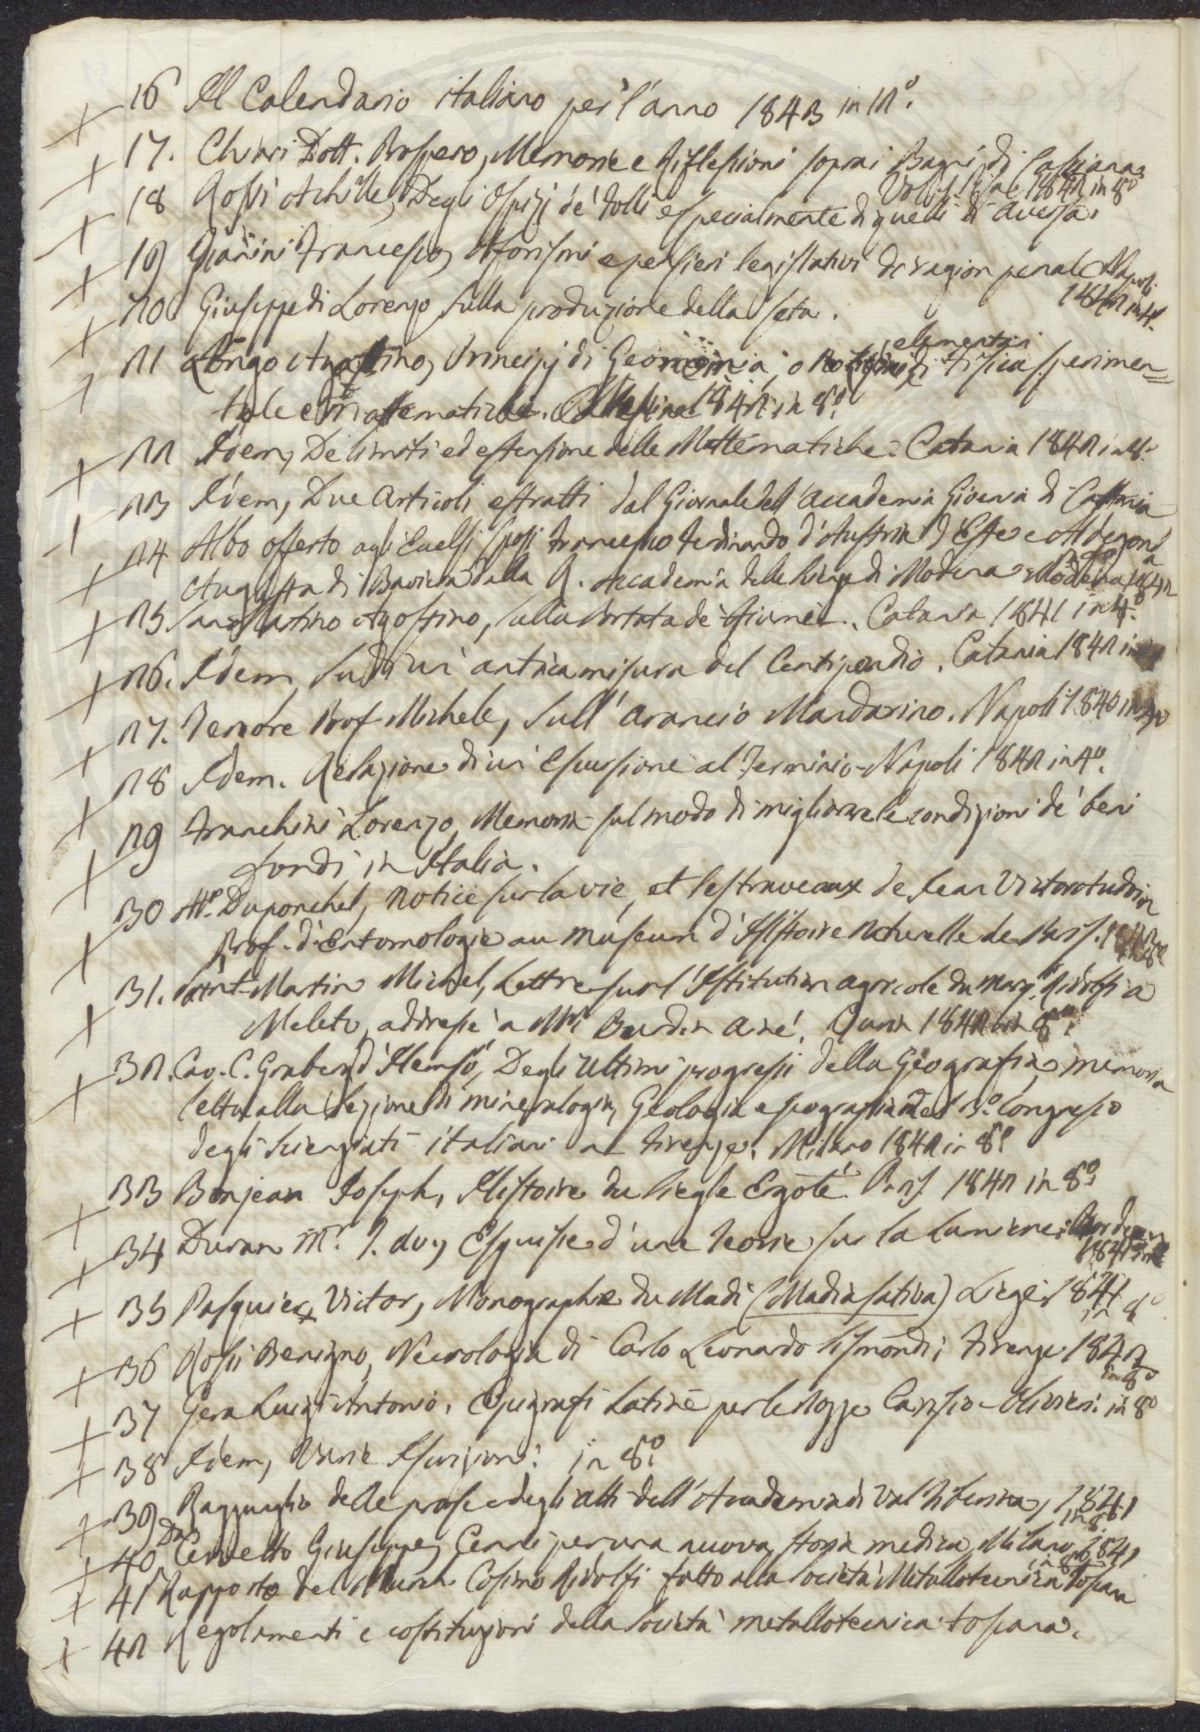 16 Il Calendario italiano per l'anno 1843 in 12°.
17. Chiari Dott. Prospero, Memorie e Riflessioni sopra i Bagni di Casciana
Pisa 1842 in 8°
18 Rossi Achille, Degli Ospizj de' folli e specialmente di quelli di Aversa.
19 Giannini Francesco, Aforismi e pensieri legislativi di ragion penale Napoli
1842 in 4°.
20 Giuseppe di Lorenzo Sulla produzione della seta.
elementari
21 Longo Agostino, Principj di o di Fisica sperimen=
tale e matematiche. Messina 1841 in 8°.
22 Idem, De limiti ed estensione delle Mattematiche. Catania 1842 in 8°.
23 Idem, Due Articoli estratti dal Giornale dell'Accademia Gioenia di Catania
24 Albo offerto agli Eccelsi Sposi Francesco Ferdinando d'Austria d'Este e Aldegonda
Augusta di Baviera dalla R. Accademia delle Scienze di Modena Modena 1842
25. San Martino Agostino, sulla Portata de' fiumi. Catania 1841 in 4°.
26. Idem, Su di un' antica misura del Centipondio. Catania 1842 in
27. Tenore Prof Michele, Sull' arancio Mandarino. Napoli 1840 in 4°
28 Idem. Relazione di un' Escursione al Terminio. Napoli 1842 in 4°.
29 Franchini Lorenzo, Memoria sul modo di migliorare le condizioni de' beni
fondi in Italia.
30 Mr. Duponchel, Notice sur la vie, et les traveaux de Jean Victor Audouin
Prof. d'Entomologie au museum d'Histoire Naturelle de Paris. 1842 in 8°
31. Saint-Martin Michel, Lettre sur l'Istitution agricole du marq. Ridolfi a
Meleto, adressé a Mr. Burdin Ainé. Turin 1842 in 8°.
32. Cav. C. Graberg d'Hemsö, Degli ultimi progressi della Geografia, memoria
letta alla sezione di mineralogia, Geologia e geografia del 3°. Congresso
degli Scienziati italiani a Firenze. Milano 1842 in 8°.
33 Bonjean Joseph, Histoire du Siegle Ergoté. Paris. 1842 in 8°.
34 Duran Mr. J. du., Esquisse d'une teorie sur la lumiere. Bordeaux
1841 in 8°
35 Pasquier Victor, Monographie du Madi (Madia sativa) Liege 1841
in 8°
36 Rossi Benigno, Necrologia di Carlo Leonardo Sismondi; Firenze 1842
in 8°
37 Gera Luigi Antonio. Epigrafi Latine per le Nozze Carisio-Olivieri. in 8°
38 Idem, Varie Iscrizioni: in 8°.
39 Ragguaglio delle prose e degli atti dell'Accademia di Val Tiberina, 1841
in 8°
40 Dr Cervetto Giuseppe, Cenni per una nuova storia medica, Milano 1841
in 8°
41 Rapporto del March. Cosimo Ridolfi fatto alla società Metallotecnica Toscana
42 Regolamenti e costituzioni della Società metallotecnica toscana.